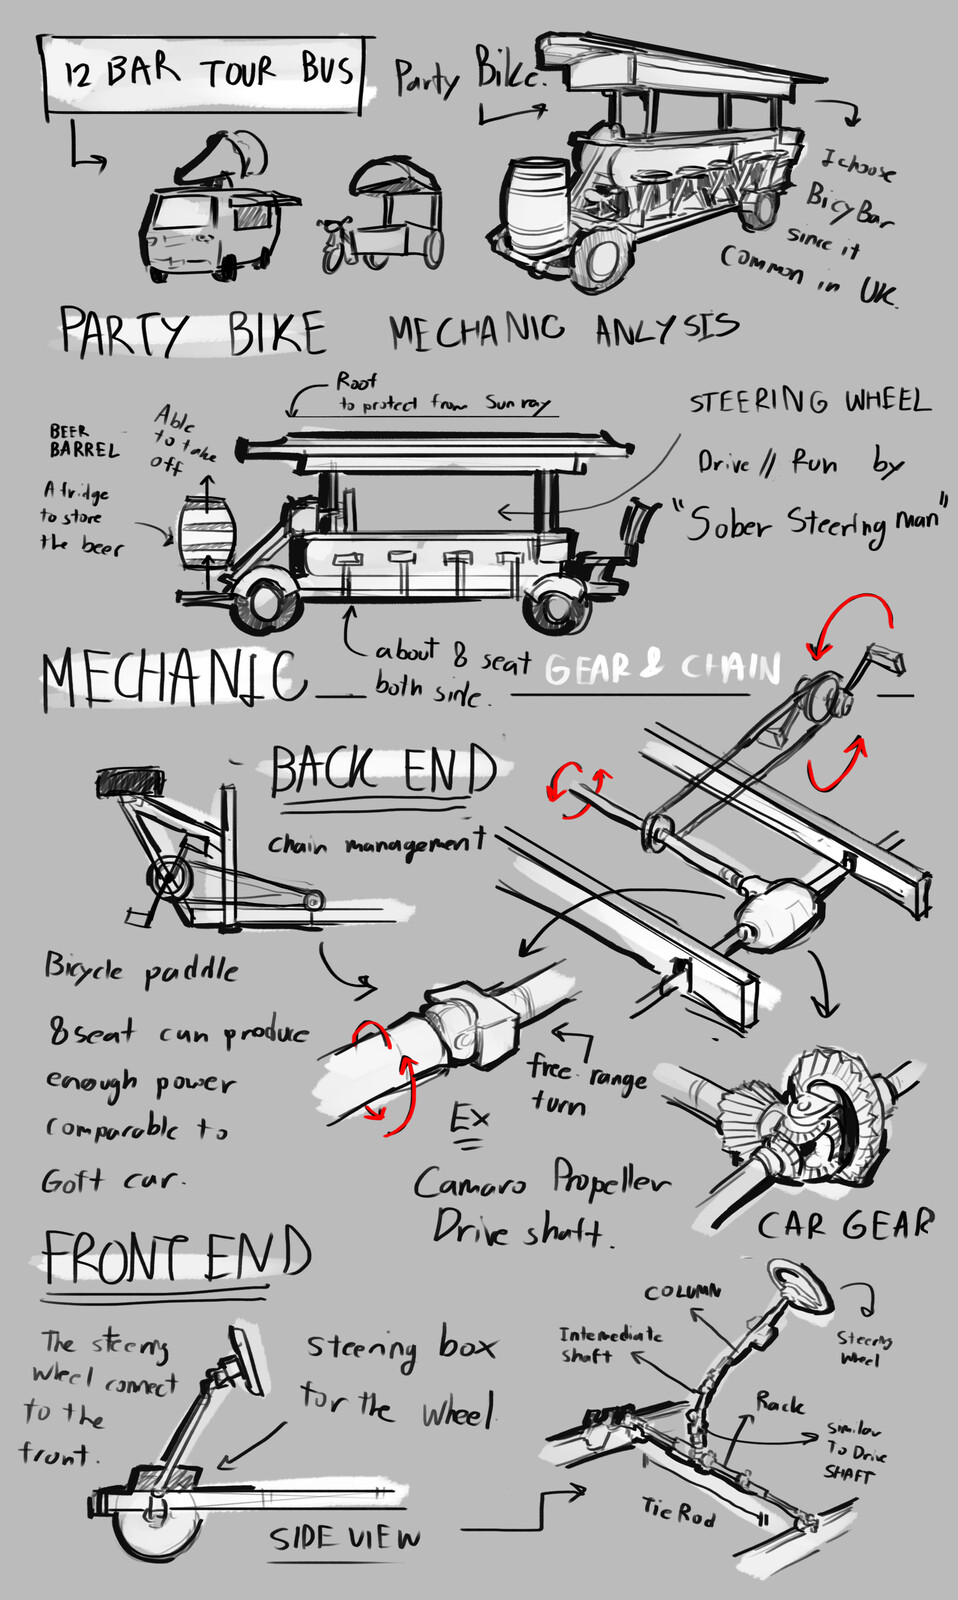 12 BAR TOUR BUS
Party Bike.
I choose
BicyBar
since it
Common in UK.
PARTY BIKE MECHANIC ANLYSIS
Roof
to protect from Sun ray
BEER
BARREL
Able
to take
off
A fridge
to store
the beer
STEERING WHEEL
Drive // Run by
"Sober Steering man"
about 8 seat
both side.
MECHANIC
GEAR & CHAIN
BACK END
chain management
Bicycle paddle
8 seat can produce
enough power
comparable to
Goft car.
free-range
turn
Ex
Camaro Propeller
Drive shaft.
CAR GEAR
FRONT END
The steering
wheel connect
to the
front.
steering box
for the wheel
SIDE VIEW
COLUMN
Intermediate
shaft
Steering
wheel
Rack
similar
To Drive
SHAFT
Tie Rod